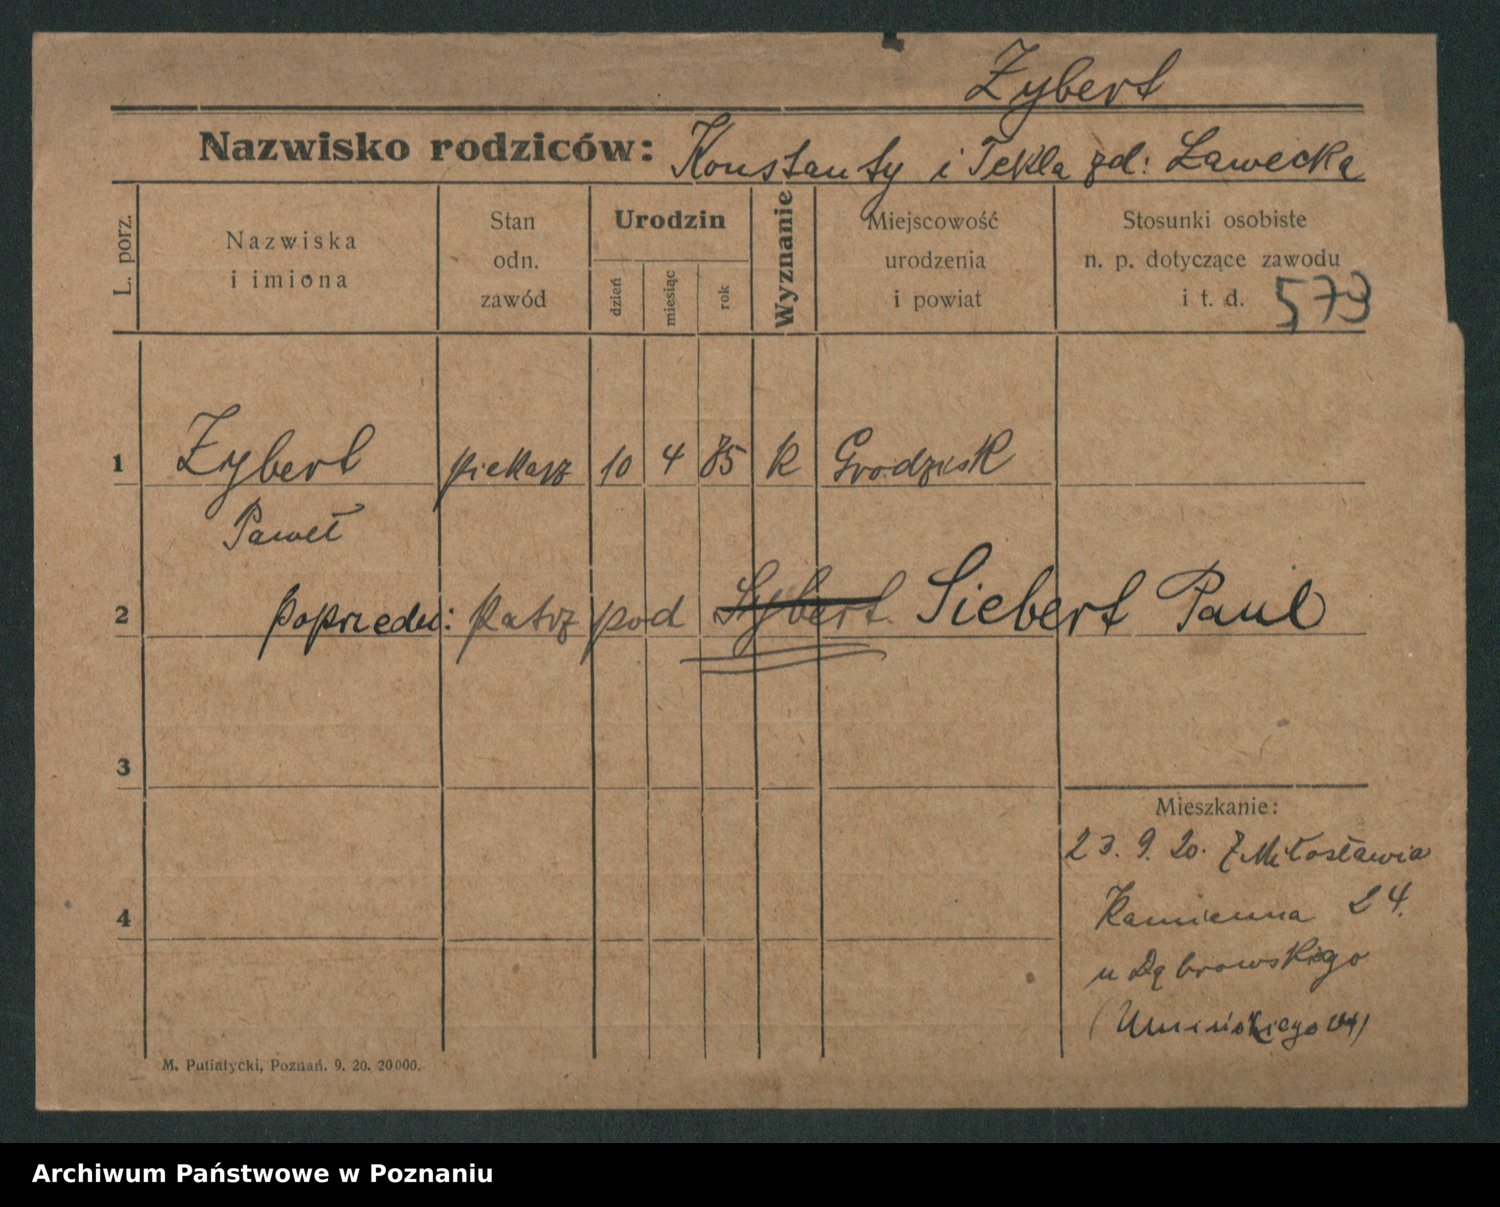 Zybert
Nazwisko rodziców: Konstanty i Tekla zd: Ławecka
L. porz.
Nazwiska
i imiona
Stan
odn.
zawód
Urodzin
dzień
miesiąc
rok
Wyznanie
Miejscowość
urodzenia
i powiat
Stosunki osobiste
n. p. dotyczące zawodu
i t. d. 573
1 Zybert piekarz 10 4 85 k Grodzisk
Paweł
2 Poprzedn: Patrz pod Sybert Siebert Paul
3
Mieszkanie:
23. 9. 20. z Miłosławia
4 Kamienna 24.
u Dąbrowskiego
(Umińskiego
M. Putiatycki, Poznań. 9. 20. 20000.
Archiwum Państwowe w Poznaniu